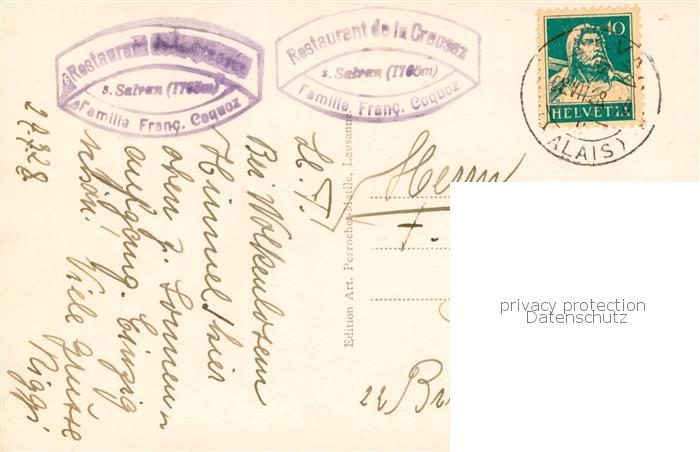 Restaurant de la Creusaz
s. Salvan (1765m)
Famille Franç. Coquoz
Restaurant de la Creusaz
s. Salvan (1765m)
Famille Franç. Coquoz
10
HELVETIA
ALAIS)
27.7.28
Bei Wolkenlosem
Himmel hier
oben z. Sonnen-
aufgang. Einzig
schön! Viele Grüsse
Edition Art. Perrochet-Matile, Lausanne
Herrn
F.
22 Br
privacy protection
Datenschutz